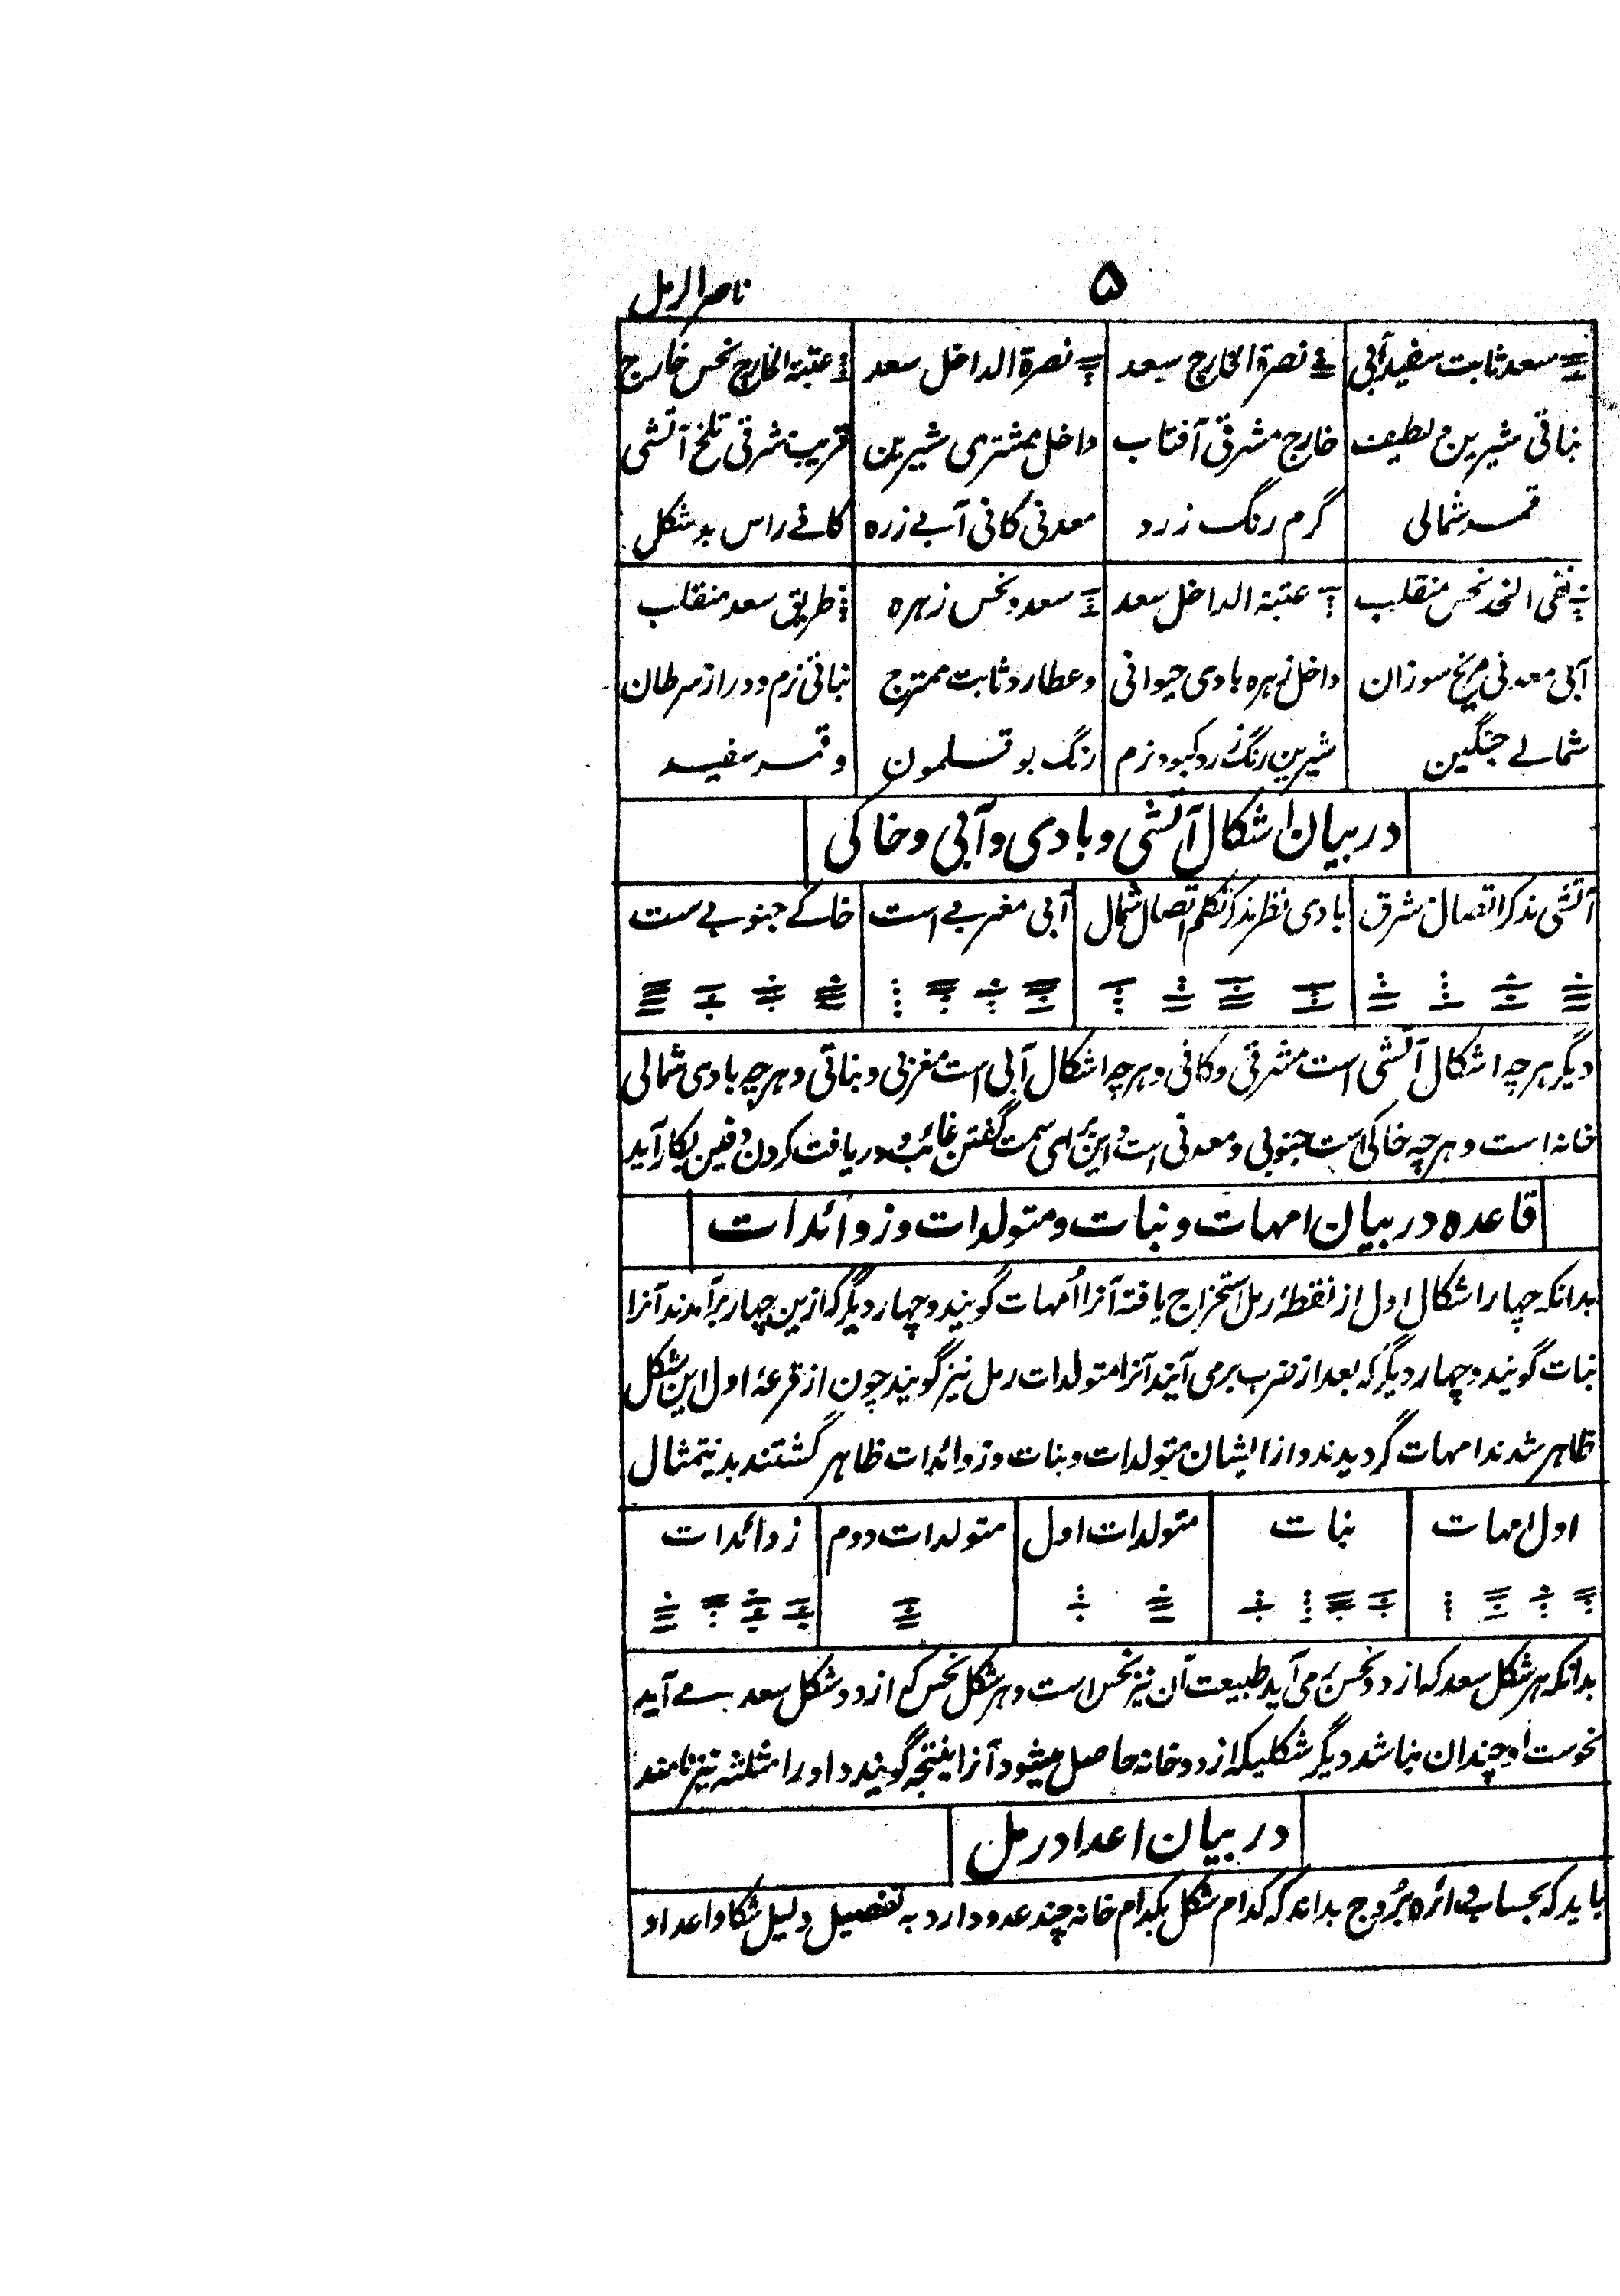 ۵
ناصر الرمل
سعد ثابت سفید آبی
نباتی شیرین و لطیف
قمر شمالی
نصرة الخارج سعد
خارج مشرقی آفتاب
گرم رنگ زرد
نصرة الداخل سعد
داخل مشتری شیرین
معدنی کانی آبے زره
عتبة الخارج نحس خارج
قریب شرقی تلخ آتشی
کانے راس بد شکل
نقی الخد نحس منقلب
آبی معدنی مریخ سوزان
شمالے جنگین
عتبة الداخل سعد
داخل زهره بادی حیوانی
شیرین رنگ زرد کبود نرم
سعد و نحس زهره
و عطارد ثابت ممتزج
رنگ بوقلمون
طریق سعد منقلب
نباتی نرم و دراز سرطان
و قمر سفید
در بیان اشکال آتشی و بادی و آبی و خاکی
آتشی مذکر اتصال شرق
بادی نظر مذکر تکلم اتصال شمال
آبی مغربے است
خاکے جنوبے ست
دیگر هرچه اشکال آتشی است مشرقی و کانی و هرچه اشکال آبی است مغربی و نباتی و هرچه بادی شمالی
خانه است و هرچه خاکی است جنوبی و معدنی است و این برای سمت گفتن غائب و دریافت کردن دفین بکار آید
قاعده در بیان امهات و نبات و متولدات و زوائدات
بدانکه چهار اشکال اول از نقطهٔ رمل استخراج یافته آنرا اُمهات گویند و چهار دیگر که ازین چهار برآمدند آنرا
نبات گویند و چهار دیگر که بعد از ضرب برمی آیند آنرا متولدات رمل نیز گویند چون از قرعهٔ اول این شکل
ظاهر شدند امهات گردیدند و از ایشان متولدات و بنات و زوائدات ظاهر گشتند بدینتمثال
اول امهات
نبات
متولدات اول
متولدات دوم
زوائدات
بدانکه هر شکل سعد که از دو نحس می آید طبیعت آن نیز نحس است و هر شکل نحس که از دو شکل سعد مے آید
نحوست او چندان نباشد دیگر شکلیکه از دو خانه حاصل میشود آنرا نتیجه گویند و او را مثلثه نیز نامند
در بیان اعداد رمل
باید که بحساب دائره بُروج بداند که کدام شکل بکدام خانه چند عدد دارد به تفصیل دلیل اعداد